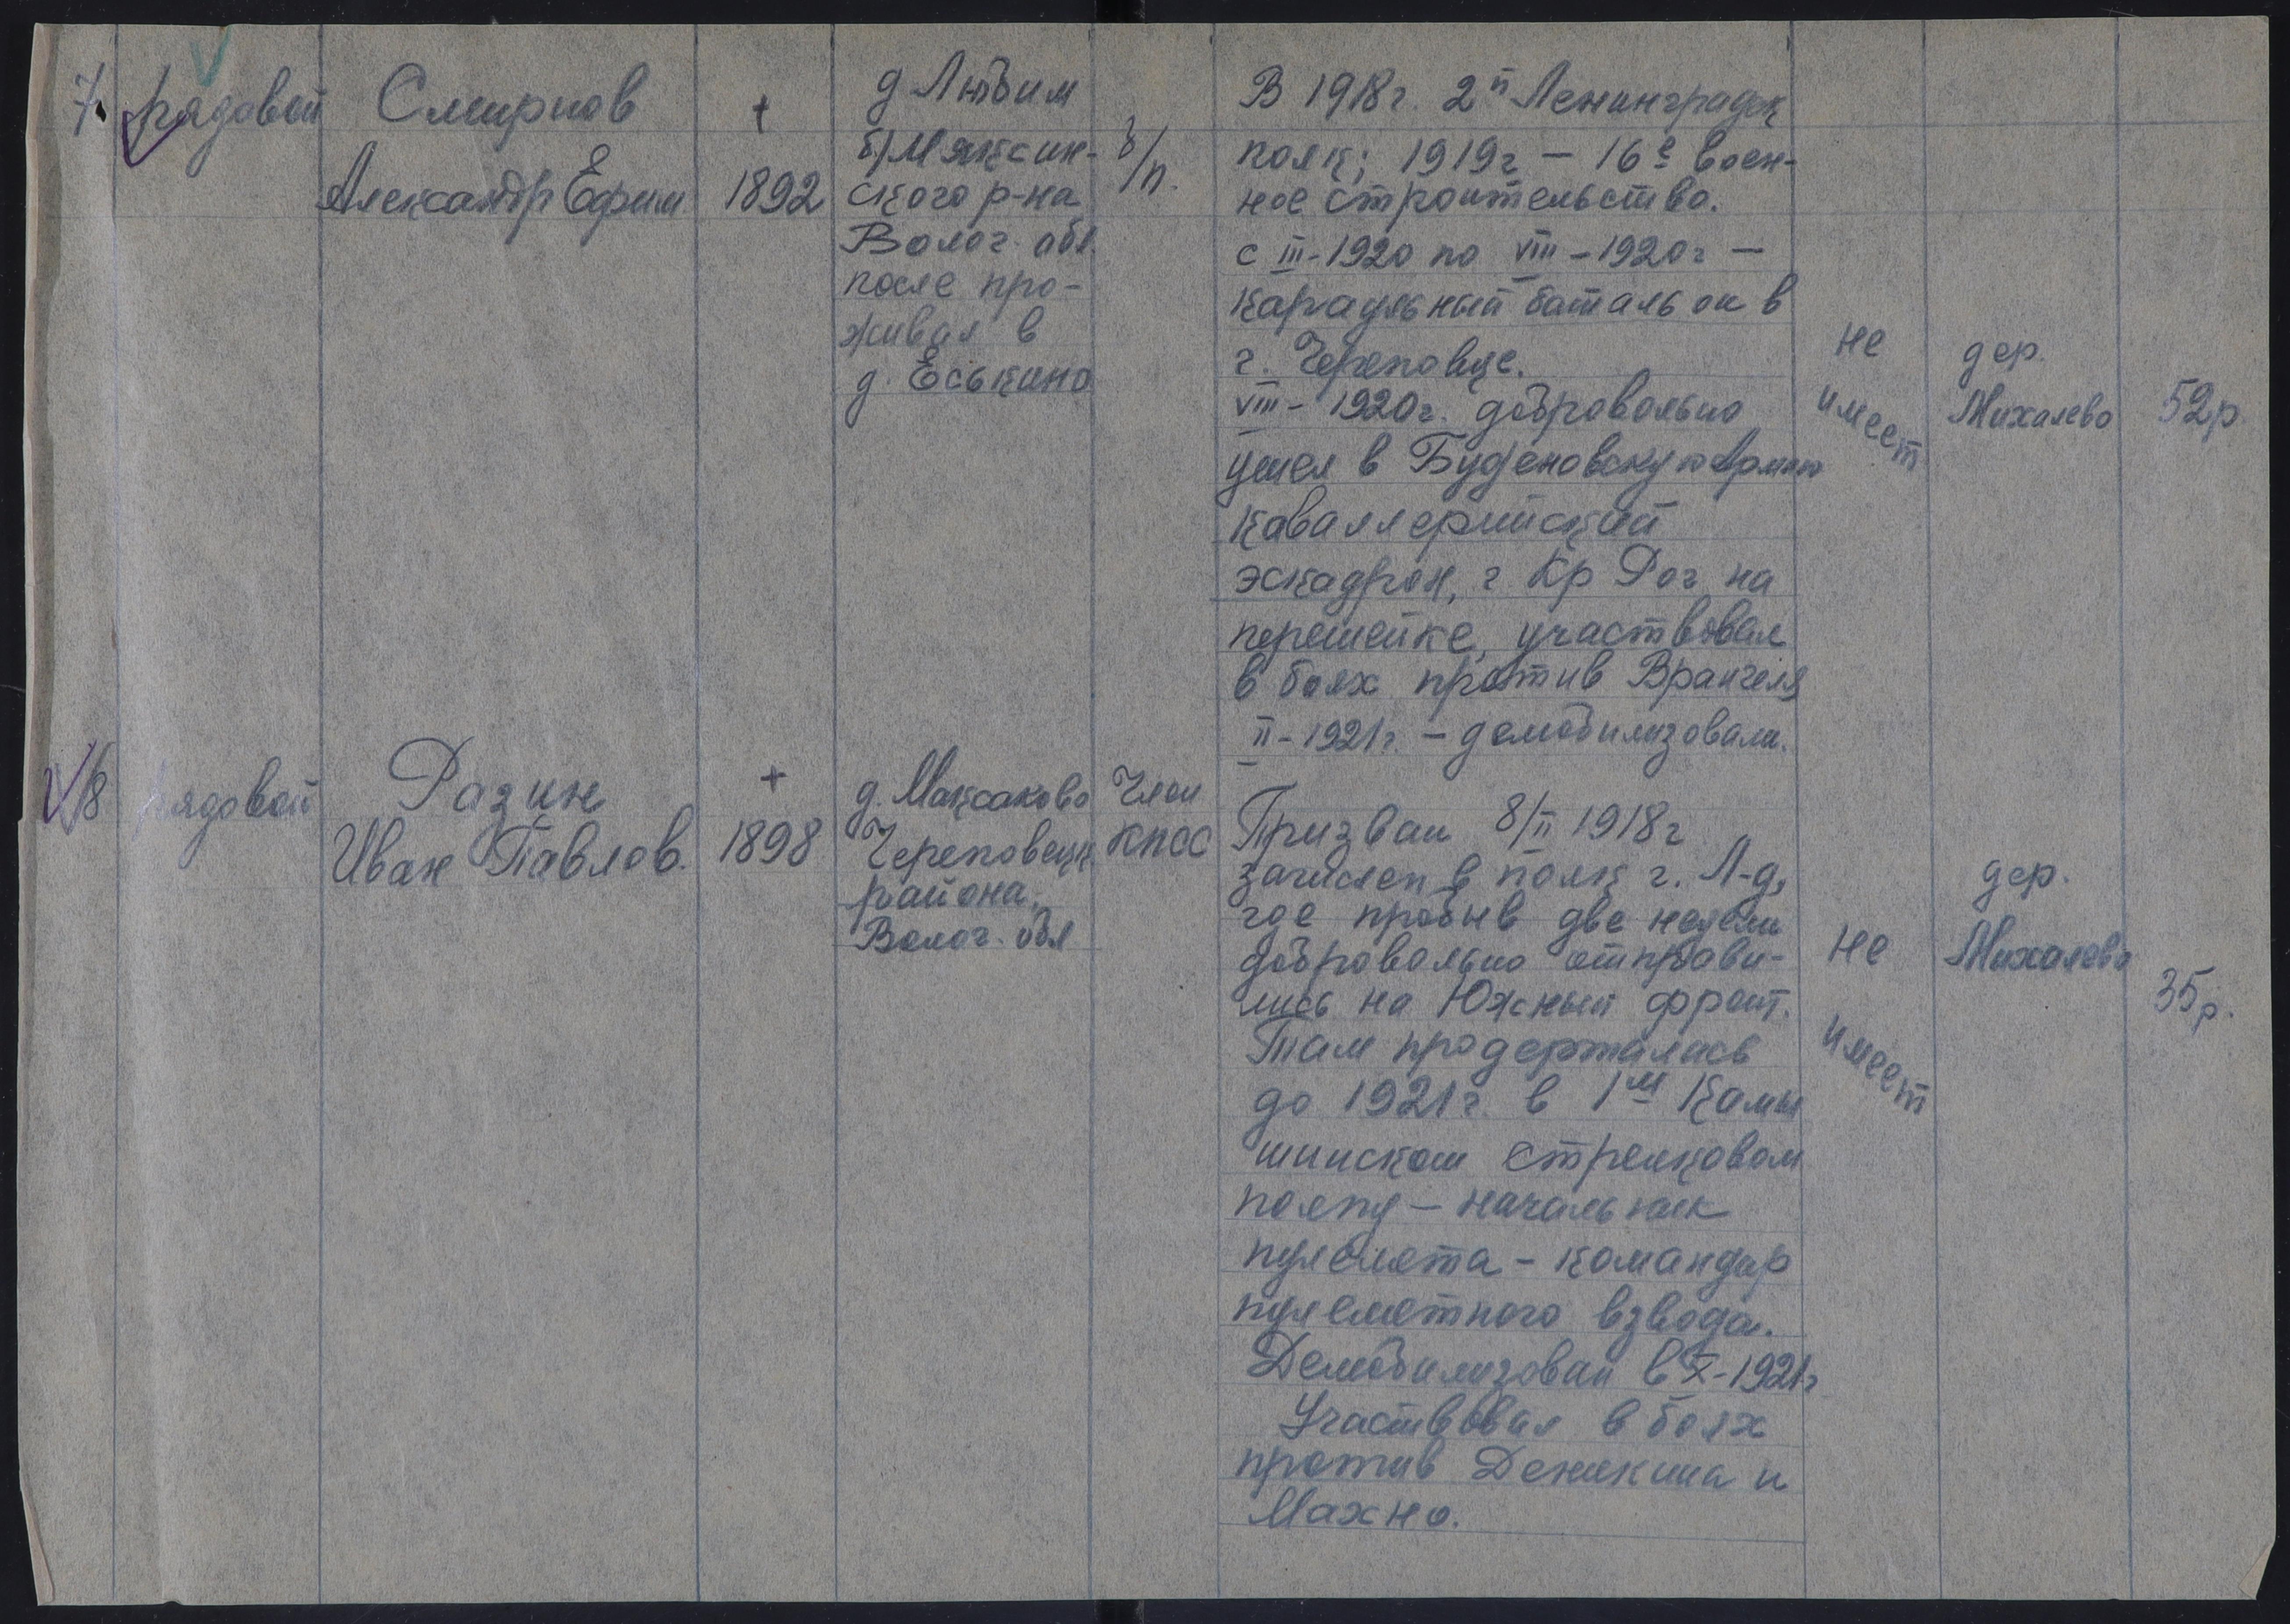 7. рядовой
Смирнов
Александр Ефим
+
1892
д Любим
б/Мяксин-
ского р-на
Волог. обл.
после про-
живал в
д. Еськино
б/п.
В 1918г. 2й Ленинградск
полк; 1919г – 16е воен-
ное строительство.
с III-1920 по VIII-1920г –
караульный батальон в
г. Череповце.
VIII-1920г. добровольно
ушел в Буденовскую Армию
кавалерийский
эскадрон, г Кр Рог на
перешейке, участвовал
в боях против Врангеля
II-1921г. – демобилизовали.
не
имеет
дер.
Михалево
52р.
8 рядовой
Разин
Иван Павлов.
+
1898
д. Максаково
Череповецк.
района.
Волог. обл
Член
КПСС
Призван 8/II 1918г
зачислен в полк г. Л-д,
где пробыв две недели
добровольно отправи-
лись на Южный фронт.
Там продержалась
до 1921г. в 1м Камы
шинском стрелковом
полку – начальник
пулемета – командир
пулеметного взвода.
Демобилизован в X-1921г
Участвовал в боях
против Деникина и
Махно.
не
имеет
дер.
Михалево
35р.